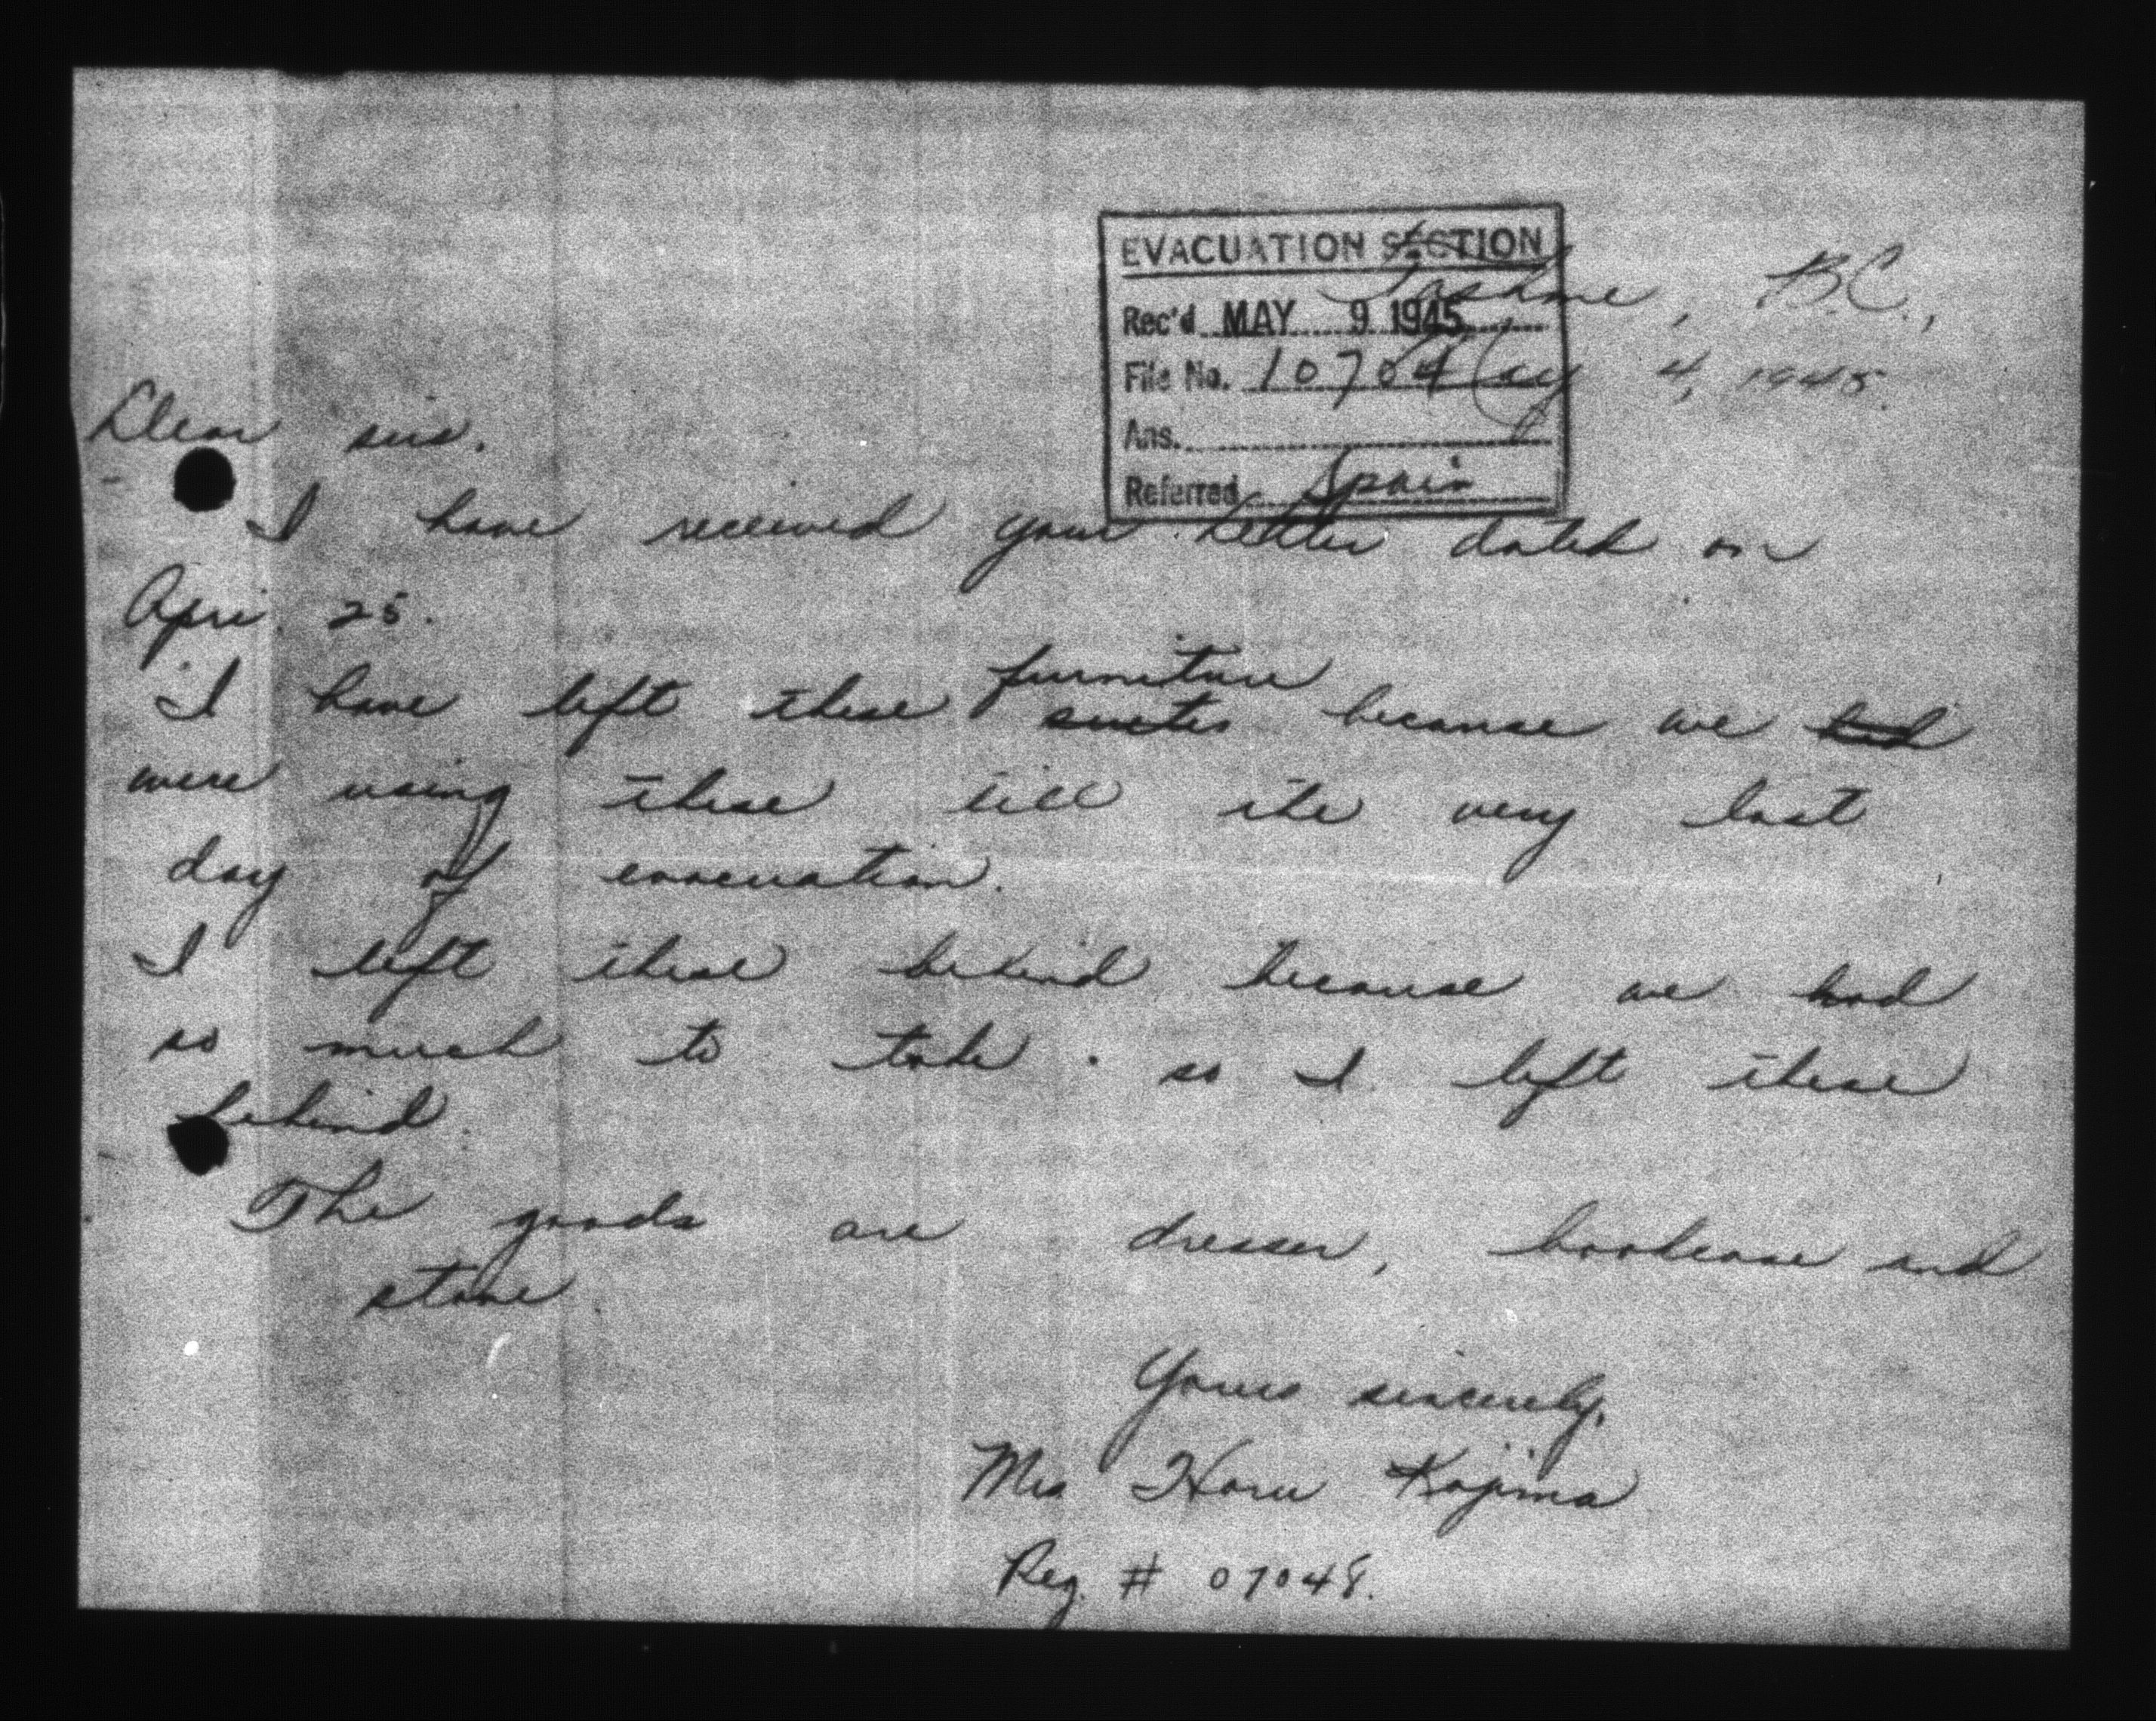 EVACUATION SECTION
Tashme, B.C.,
Rec'd MAY 9 1945
File No. 10704
May 4, 1945.
Ans.
Referred Spain
Dear sirs.
I have received your letter dated on
Apri. 25.
I have left these furniture suites because we had
were using these till the very last
day of evacuation.
I left these behind because we had
so much to take. so I left these
behind.
The goods are dresser, bookcase and
stove.
Yours sincerely,
Mrs Haru Kojima
Reg. # 07048.